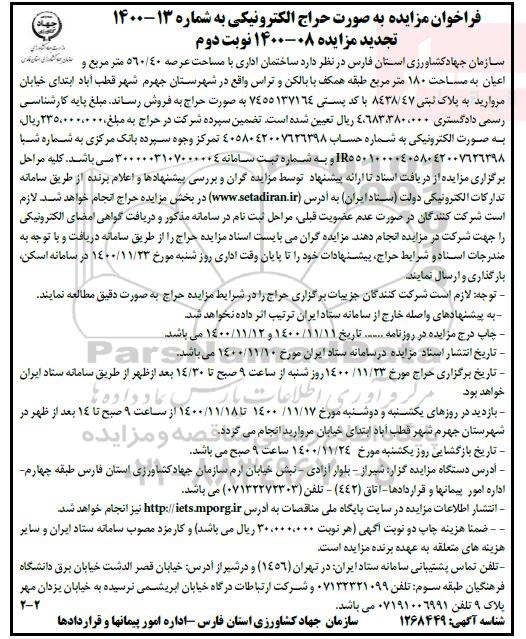 فراخوان مزایده به صورت حراج الکترونیکی به شماره ۱۳-۱۴۰۰
تجدید مزایده ۰۸-۱۴۰۰ نوبت دوم
سازمان جهادکشاورزی استان فارس در نظر دارد ساختمان اداری با مساحت عرصه ۵۶۰/۴۰ متر مربع و
اعیان به مساحت ۱۸۰ متر مربع طبقه همکف با بالکن و تراس واقع در شهرستان جهرم شهر قطب آباد ابتدای خیابان
مروارید به پلاک ثبتی ۸۴۳۸/۴۷ با کد پستی ۷۴۵۵۱۳۷۱۶۴ به صورت حراج به فروش رساند. مبلغ پایه کارشناسی
رسمی دادگستری ۴,۶۸۳,۳۸۰,۰۰۰ ریال تعیین شده است. تضمین سپرده شرکت در حراج به مبلغ ۲۳۵,۰۰۰,۰۰۰ ریال،
به صورت الکترونیکی به شماره حساب ۴۰۵۸۰۴۲۰۰۷۶۲۶۳۹۸ تمرکز وجوه سپرده بانک مرکزی به شماره شبا
IR۵۵۰۱۰۰۰۰۴۰۵۸۰۴۲۰۰۷۶۲۶۳۹۸ و به شماره ثبت سامانه ۳۰۰۰۰۰۳۱۰۷۰۰۰۰۰۴ می باشد. کلیه مراحل
برگزاری مزایده از دریافت اسناد تا ارائه پیشنهاد توسط مزایده گران و بررسی پیشنهادها و اعلام برنده از طریق سامانه
تدارکات الکترونیکی دولت (ستاد ایران) به آدرس (www.setadiran.ir) در بخش مزایده حراج انجام خواهد شد. لازم
است شرکت کنندگان در صورت عدم عضویت قبلی، مراحل ثبت نام در سامانه مذکور و دریافت گواهی امضای الکترونیکی
را جهت شرکت در مزایده انجام دهند. مزایده گران می بایست اسناد مزایده حراج را از طریق سامانه دریافت و با توجه به
مندرجات اسناد و شرایط حراج، پیشنهادات خود را تا پایان وقت اداری روز شنبه مورخ ۱۴۰۰/۱۱/۲۳ در سامانه اسکن،
بارگذاری و ارسال نمایند.
- توجه: لازم است شرکت کنندگان جزییات برگزاری حراج را در شرایط مزایده حراج به صورت دقیق مطالعه نمایند.
- به پیشنهادهای واصله خارج از سامانه ستاد ایران ترتیب اثر داده نخواهد شد.
- چاپ درج مزایده در روزنامه ....... تاریخ ۱۴۰۰/۱۱/۱۱ و ۱۴۰۰/۱۱/۱۲ می باشد.
- تاریخ انتشار اسناد مزایده درسامانه ستاد ایران مورخ ۱۴۰۰/۱۱/۱۰ می باشد.
- تاریخ برگزاری حراج مورخ ۱۴۰۰/۱۱/۲۳ روز شنبه از ساعت ۹ صبح تا ۱۴/۳۰ بعد ازظهر از طریق سامانه ستاد ایران
خواهد بود.
- بازدید در روزهای یکشنبه و دوشنبه مورخ ۱۴۰۰/۱۱/۱۷ تا ۱۴۰۰/۱۱/۱۸ از ساعت ۹ صبح تا ۱۴ بعد از ظهر در
شهرستان جهرم شهر قطب آباد ابتدای خیابان مروارید انجام می گردد.
- تاریخ بازگشایی روز یکشنبه مورخ ۱۴۰۰/۱۱/۲۴ ساعت ۹ صبح می باشد.
- آدرس دستگاه مزایده گزار: شیراز - بلوار آزادی - نبش خیابان ارم سازمان جهادکشاورزی استان فارس طبقه چهارم-
اداره امور پیمانها و قراردادها- اتاق (۴۴۲) - تلفن (۰۷۱۳۲۲۷۲۳۰۳) می باشد.
- انتشار اطلاعات مزایده در سایت پایگاه ملی مناقصات به آدرس http://iets.mporg.ir نیز انجام خواهد شد.
- - ضمنا هزینه چاپ دو نوبت آگهی (هر نوبت ۳۰,۰۰۰,۰۰۰ ریال می باشد) و کارمزد مصوب سامانه ستاد ایران و سایر
هزینه های متعلقه به عهده برنده مزایده است.
-تلفن تماس پشتیبانی سامانه ستاد ایران: در تهران (۱۴۵۶) و درشیراز آدرس: خیابان قصر الدشت خیابان برق دانشگاه
فرهنگیان طبقه سوم: تلفن ۰۷۱۳۲۳۲۱۰۹۹ و شرکت ارتباطات درگاه خیابان ابریشمی نرسیده به خیابان یزدان مهر
پلاک ۹ تلفن ۰۷۱۹۱۰۰۶۹۹۱ می باشد. ۲-۲
شناسه آگهی: ۱۲۶۸۴۴۹ سازمان جهاد کشاورزی استان فارس -اداره امور پیمانها و قراردادها